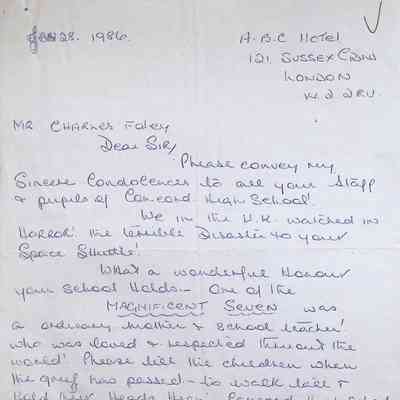 Jan 28. 1986.
A.B.C Hotel
121 Sussex Gdns
London
W.2 2RU.
Mr Charles Foley
Dear Sir,
Please convey my
Sincere Condolences to all your Staff
& pupils of Concord High School!
We in the U.K. watched in
Horror! the terrible Disaster to your
Space Shuttle!
What a wonderful Honour
your School Holds - One of the
MAGNIFICENT SEVEN was
a ordinary mother & school teacher!
who was loved & respected throuout the
world! Please tell the children when
the grief has passed - to walk tall &
Hold their Heads High! Concord High School